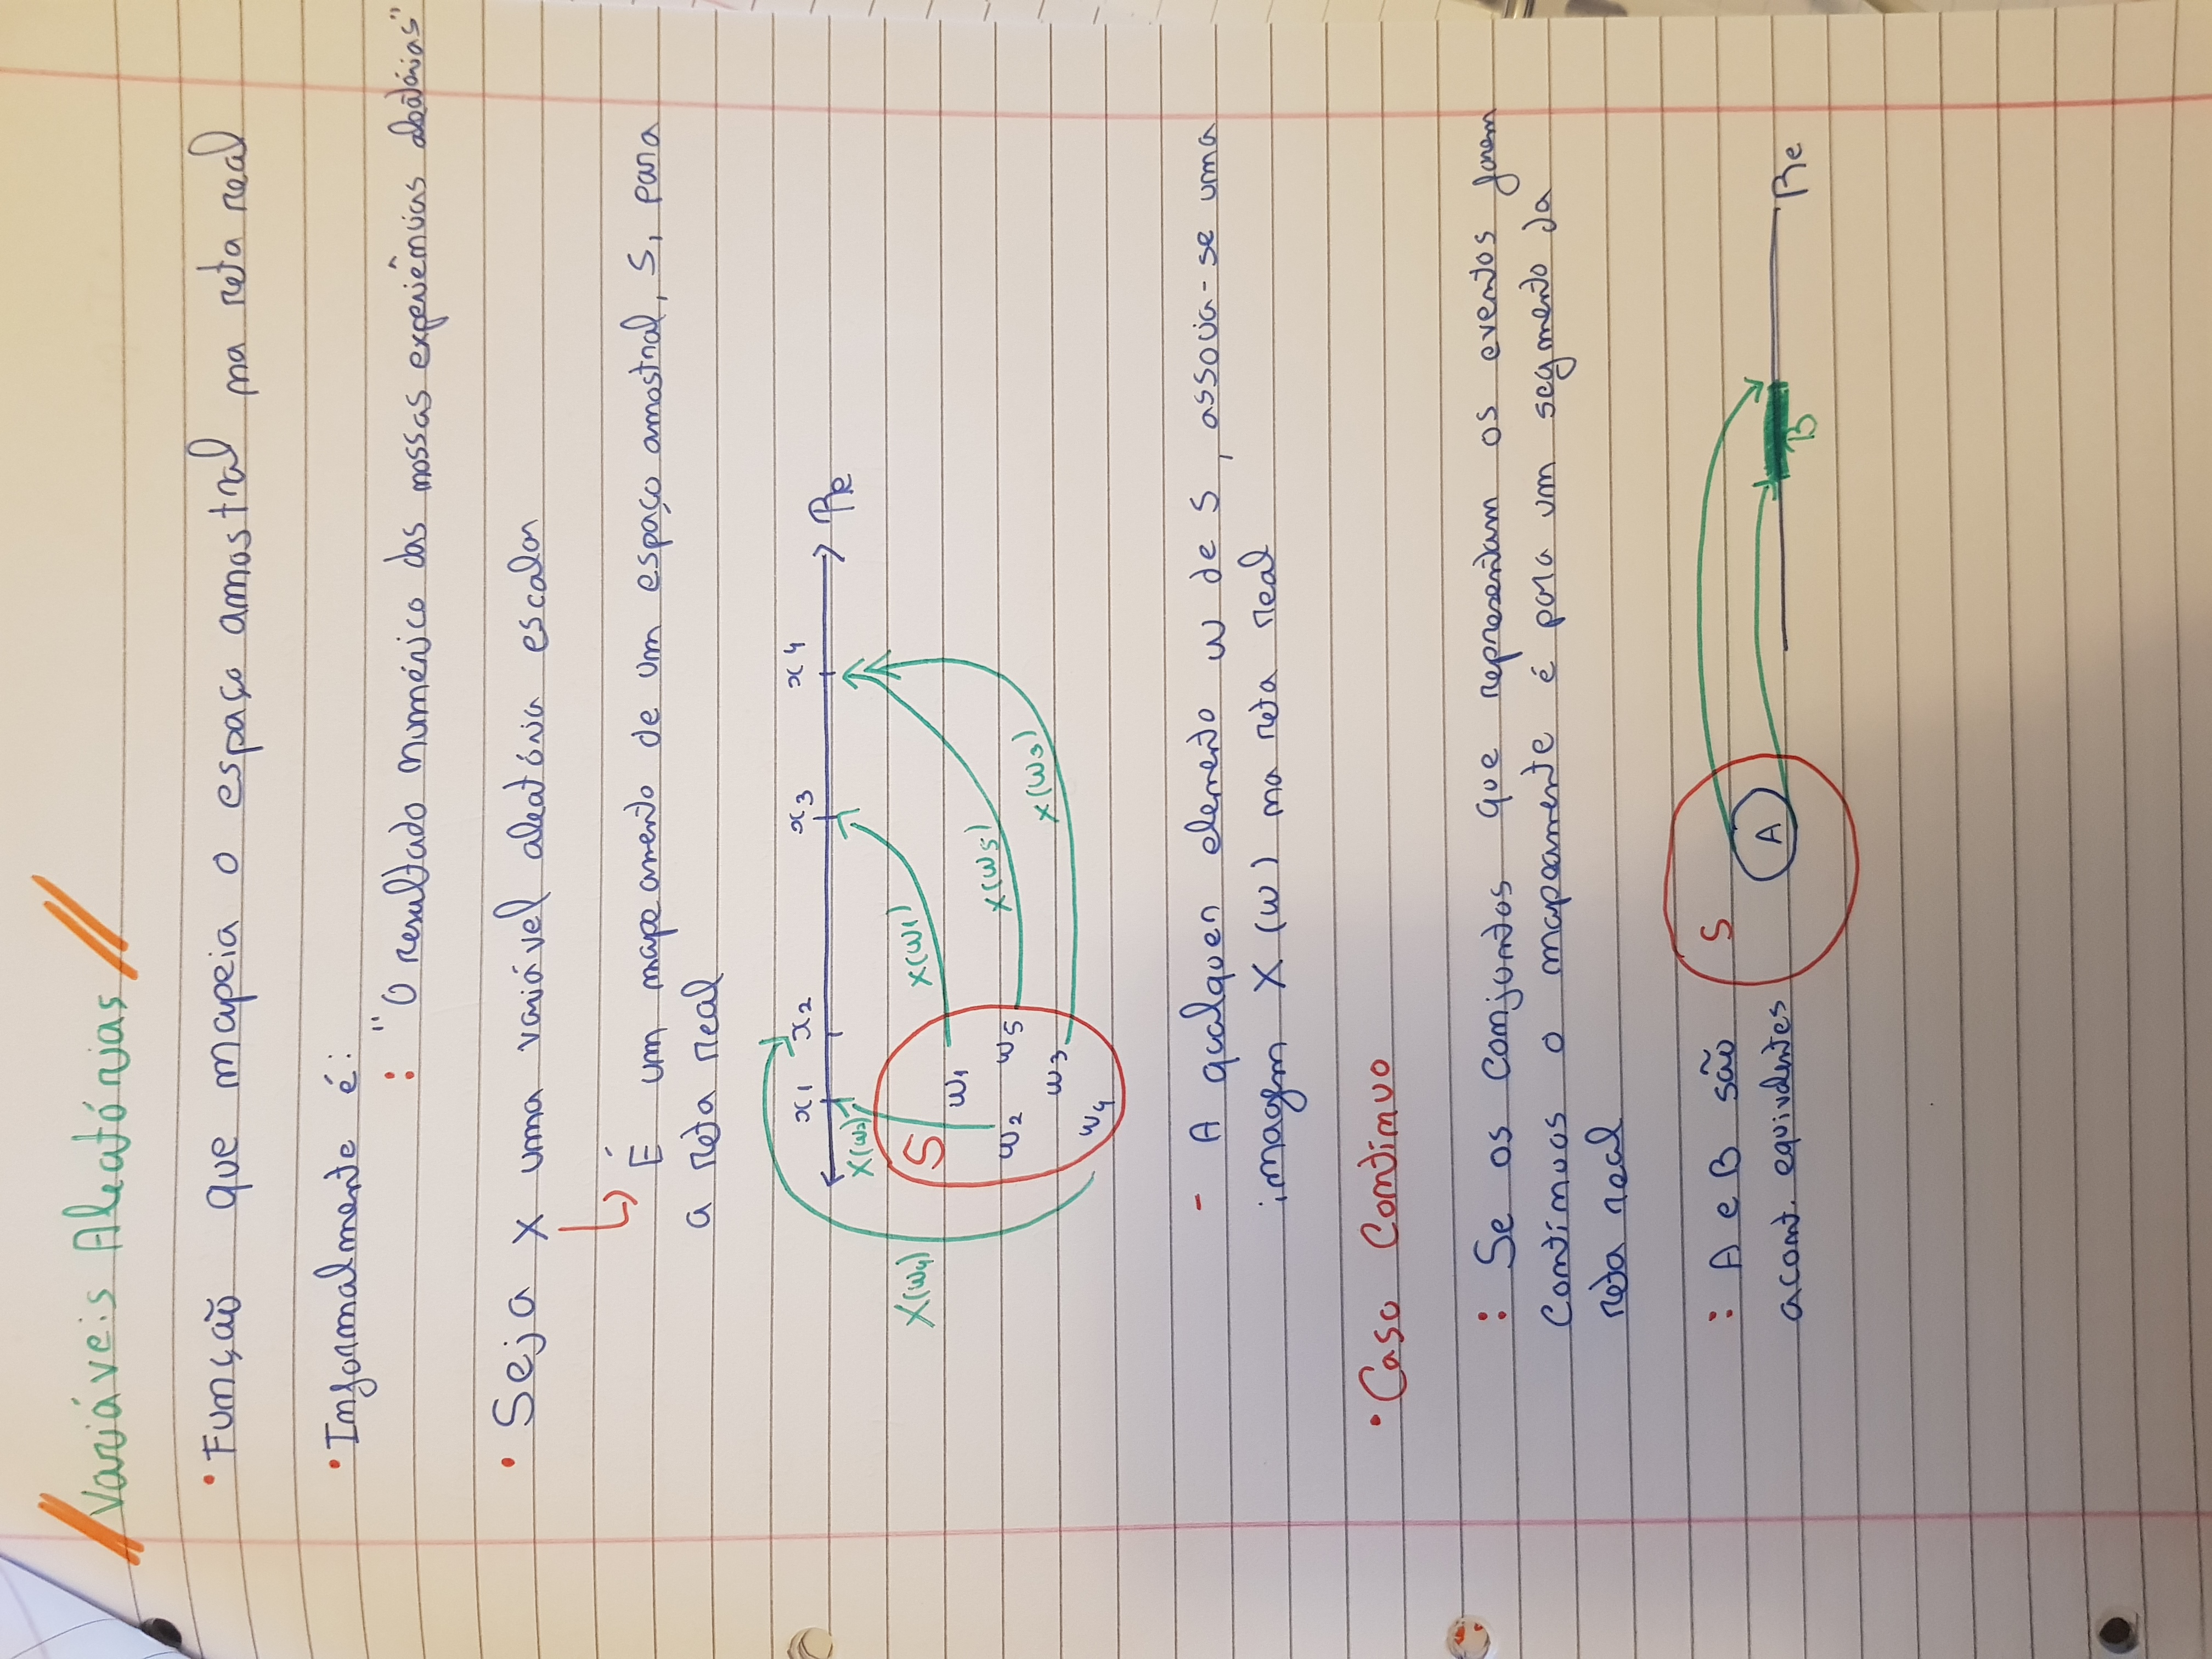 Variáveis Aleatórias
• Função que mapeia o espaço amostral na reta real
• Informalmente é:
: "O resultado numérico das nossas experiências aleatórias"
• Seja X uma variável aleatória escalar
↳ É um mapeamento de um espaço amostral, S, para
a reta real
x1 x2 x3 x4
Re
X(w2)
X(w4) S X(w1)
w1
w2 w5 X(w5)
w3 X(w3)
w4
- A qualquer elemento w de S, associa-se uma
imagem X(w) na reta real
• Caso Contínuo
: Se os conjuntos que representam os eventos forem
contínuos o mapeamente é para um segmento da
reta real
: A e B são
acont. equivalentes
S
A
B
Re